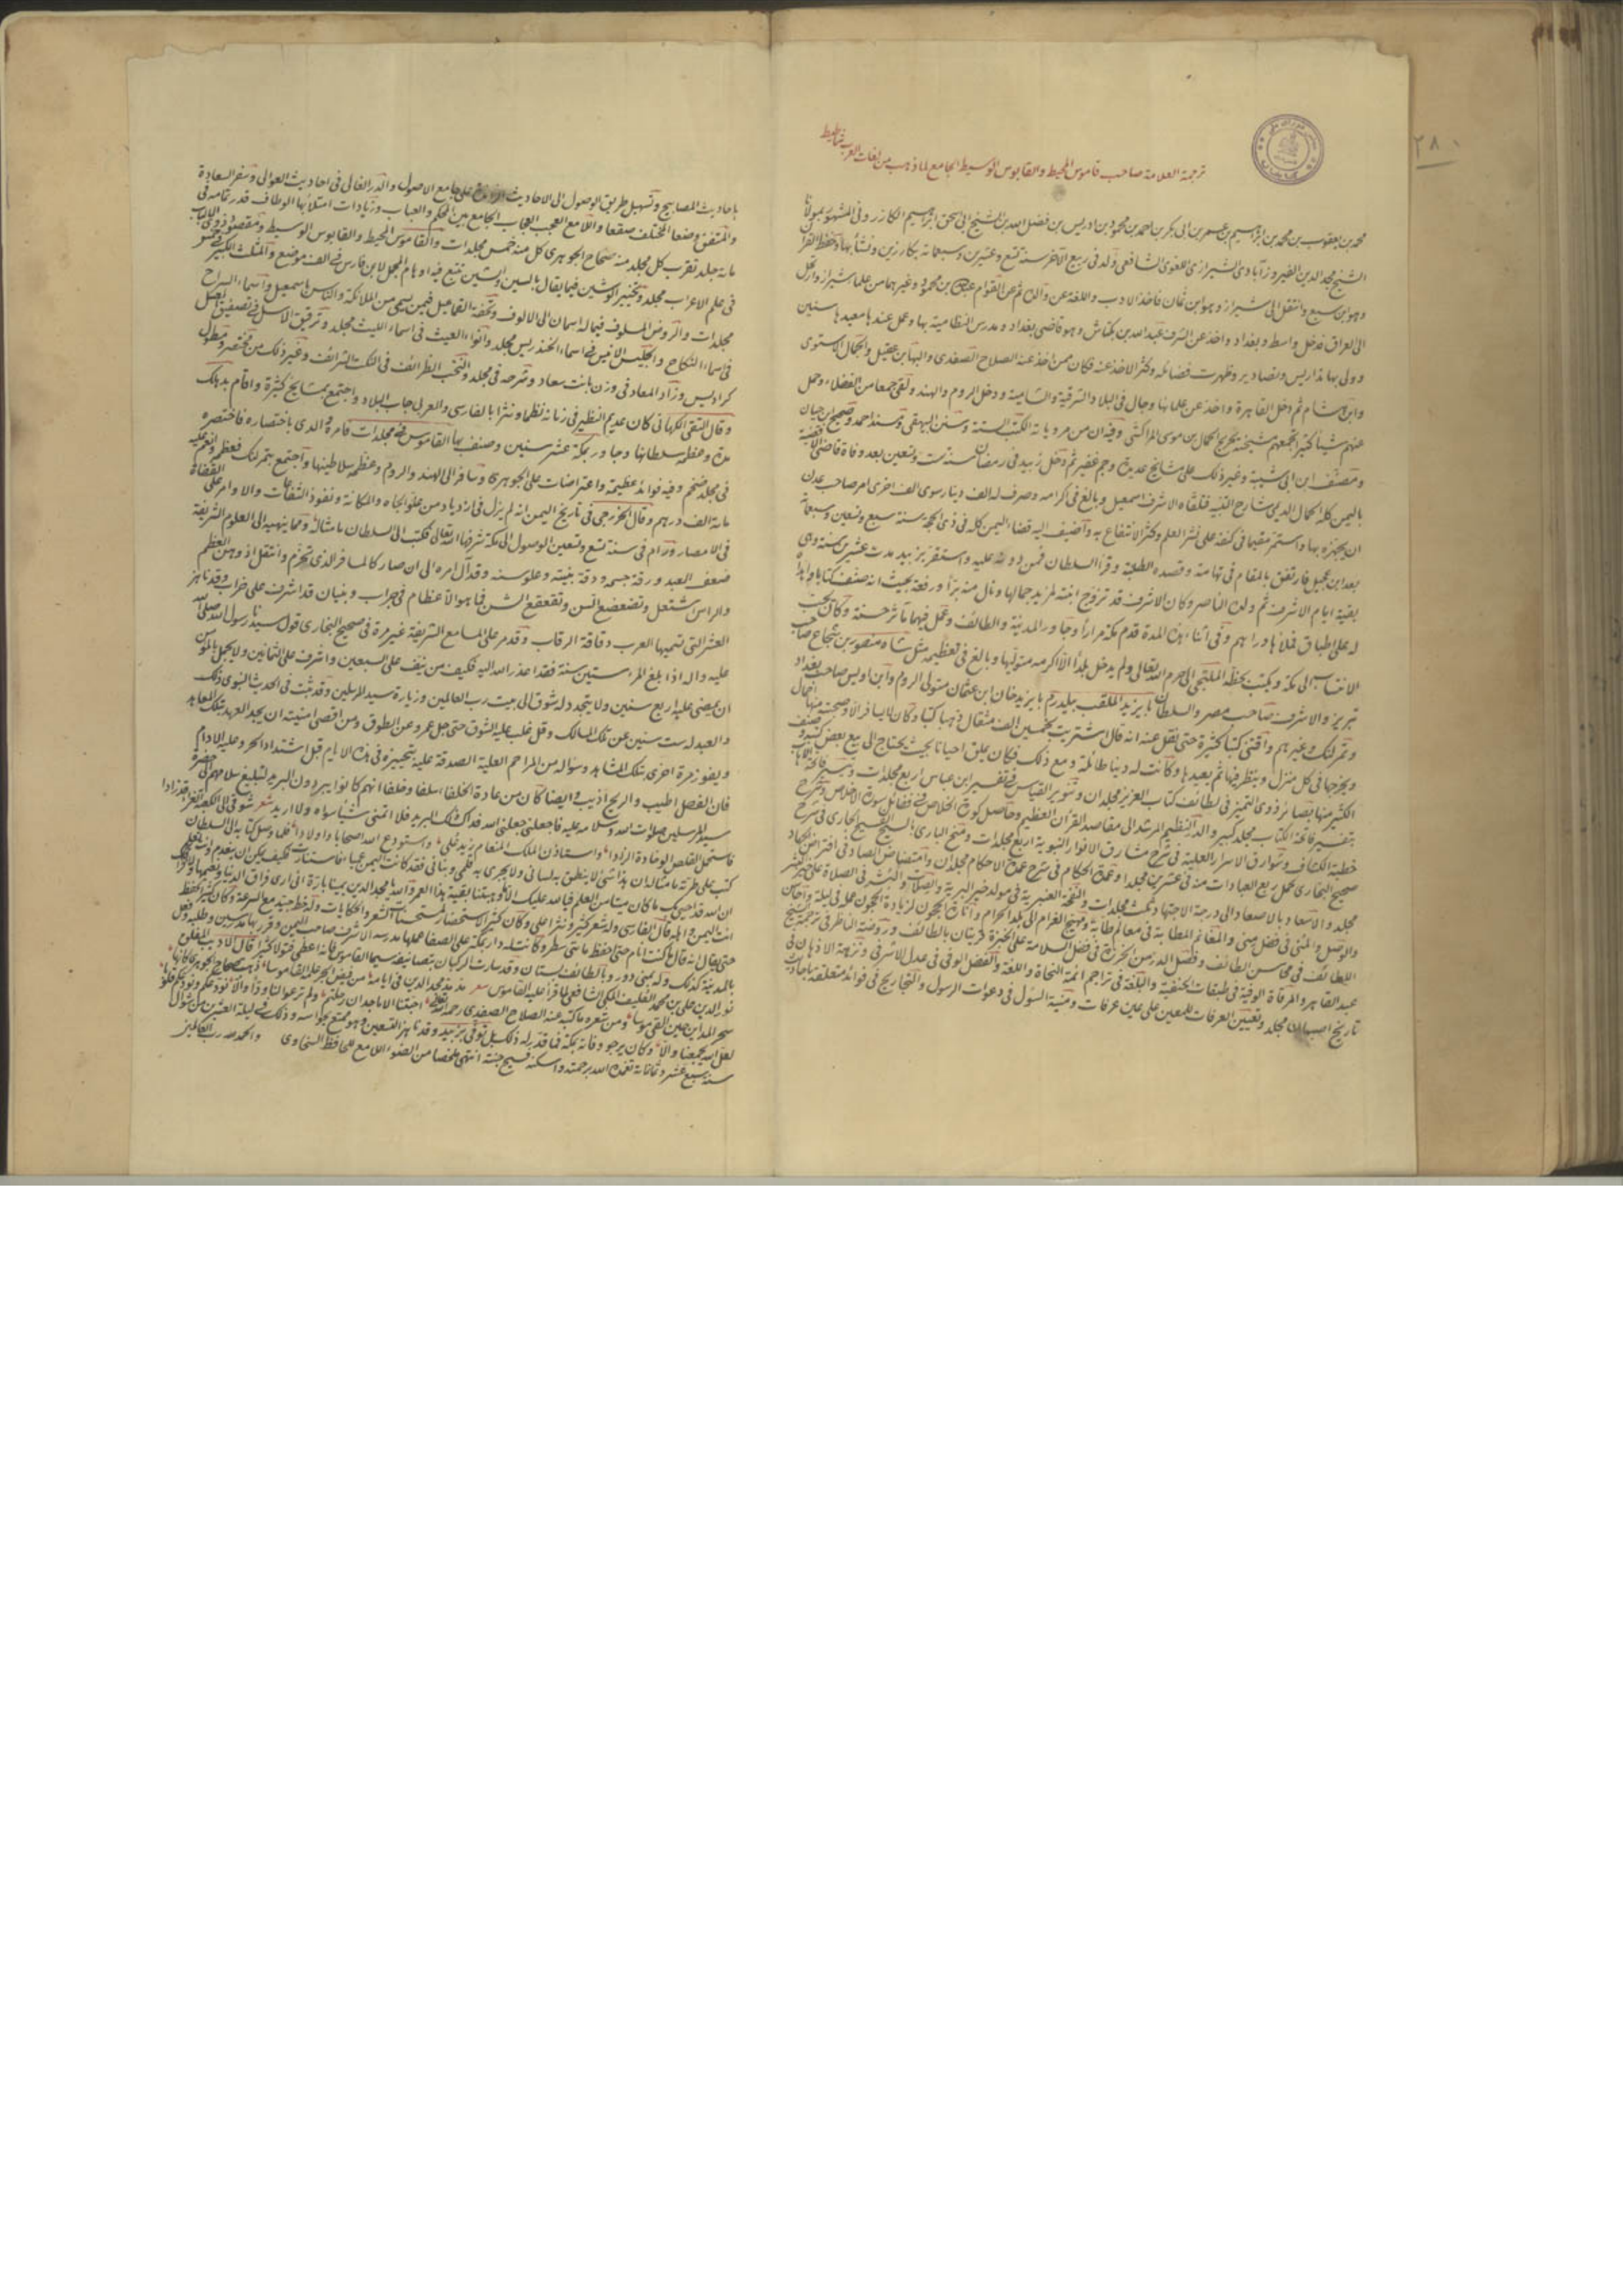 ٢٨٠
ترجمة العلامة صاحب قاموس المحيط والقابوس الوسيط الجامع لما ذهب من لغات العرب شماطيط
محمد بن يعقوب بن محمد بن ابراهيم بن عمر بن ابى بكر بن احمد بن محمود بن ادريس بن فضل الله بن الشيخ ابى اسحق ابراهيم الكازرونى المشهور بمولانا
الشيخ مجد الدين الفيروزآبادى الشيرازى اللغوى الشافعى ولد فى ربيع الآخر سنة تسع وعشرين وسبعمائة بكازرين ونشأ بها وحفظ القرآن
وهو ابن سبع وانتقل الى شيراز وهو ابن ثمان فاخذ الادب واللغة عن والده ثم عن القوام عبدالله بن محمود وغيرهما من علماء شيراز وارتحل
الى العراق فدخل واسط وبغداد واخذ عن الشرف عبدالله بن بكتاش وهو قاضى بغداد ومدرس النظامية بها وعمل عنده معيدها سنين
وولى بها تداريس وتصادير وظهرت فضائله وكثر الاخذ عنه فكان ممن اخذ عنه الصلاح الصفدى والبهاء بن عقيل والجمال الاسنوى
وابن هشام ثم دخل القاهرة واخذ عن علمائها وجال فى البلاد الشرقية والشامية ودخل الروم والهند ولقى جمعا من الفضلاء وحمل
عنهم شيئا كثيرا تجمعهم مشيخته تخريج الجمال بن موسى المراكشى وفيه ان من مروياته الكتب الستة وسنن البيهقى ومسند احمد وصحيح ابن حبان
ومصنف ابن ابى شيبة وغير ذلك على مشايخ عديدة وجم غفير ثم دخل زبيد فى رمضان سنة ست وتسعين بعد وفاة قاضى الاقضية
باليمن كله الجمال الريمى شارح التنبيه فتلقاه الاشرف اسمعيل وبالغ فى اكرامه وصرف له الف دينار سوى الف اخرى امر صاحب عدن
ان يجهزه بها واستمر مقيما فى كنفه على نشر العلم وكثر الانتفاع به واضيف اليه قضاء اليمن كله فى ذى الحجة سنة سبع وتسعين وسبعمائة
بعد ابن عجيل فارتفق بالمقام فى تهامة وقصده الطلبة وقرأ السلطان فمن دونه عليه واستقر بزبيد مدة عشرين سنة وهى
بقية ايام الاشرف ثم ولده الناصر وكان الاشرف قد تزوج ابنته لمزيد جمالها ونال منه برا ورفعة بحيث انه صنف كتابا واهداه
له على اطباق فملأها دراهم وفى اثناء هذه المدة قدم مكة مرارا وجاور المدينة والطائف وعمل فيهما مآثر حسنة وكان يحب
الانتساب الى مكة ويكتب بخطه الملتجى الى حرم الله تعالى ولم يدخل بلدا الا اكرمه متوليها وبالغ فى تعظيمه مثل شاه منصور بن شجاع صاحب
تبريز والاشرف صاحب مصر والسلطان بايزيد الملقب بيلدرم بايزيد خان ابن عثمان متولى الروم وابن اويس صاحب بغداد
وتمرلنك وغيرهم واقتنى كتبا كثيرة حتى نقل عنه انه قال اشتريت بخمسين الف مثقال ذهبا كتبا وكان لا يسافر الا وصحبته منها احمال
ويخرجها فى كل منزل وينظر فيها ثم يعيدها وكانت له دنيا طائلة ومع ذلك فكان يملق احيانا بحيث يحتاج الى بيع بعض كتبه وصنف
الكثير منها بصائر ذوى التمييز فى لطائف كتاب العزيز مجلدان وتنوير المقباس فى تفسير ابن عباس اربع مجلدات وتيسير فائحة الاهاب
بتفسير فاتحة الكتاب مجلد كبير والدر النظيم المرشد الى مقاصد القرآن العظيم وحاصل كورة الخلاص فى فضائل سورة الاخلاص وشرح
خطبة الكشاف وشوارق الاسرار العلية فى شرح مشارق الانوار النبوية اربع مجلدات ومنح البارى بالسيح الفسيح الجارى فى شرح
صحيح البخارى كمل ربع العبادات منه فى عشرين مجلدا وعدة الحكام فى شرح عمدة الاحكام مجلدان وامتضاض السهاد فى افتراض الجهاد
مجلد والاسعاد بالاصعاد الى درجة الاجتهاد ثلث مجلدات والنفحة العنبرية فى مولد خير البرية والصلات والبشر فى الصلاة على خير البشر
والوصل والمنى فى فضل منى والمغانم المطابة فى معالم طابة ومهيج الغرام الى البلد الحرام واثارة الحجون لزيارة الحجون عمله فى ليلة واحاسن
اللطائف فى محاسن الطائف وفصل الدرة من الخرزة فى فضل السلامة على الخبزة قريتان بالطائف وروضة الناظر فى ترجمة الشيخ
عبد القاهر والمرقاة الوفية فى طبقات الحنفية والبلغة فى تراجم ائمة النحاة واللغة والفضل الوفى فى عدل الاشرفى ونزهة الاذهان فى
تاريخ اصبهان مجلد وتعيين الغرفات للمعين على عين عرفات ومنية السؤل فى دعوات الرسول والتخاريج فى فوائد متعلقة باحاديث
باحاديث المصابيح وتسهيل طريق الوصول الى الاحاديث الزائدة على جامع الاصول والدر الغالى فى احاديث العوالى وسفر السعادة
والمتفق وضعا المختلف صقعا واللامع المعجب العجاب الجامع بين المحكم والعباب وزيادات امتلأ بها الوطاف قدر تمامه فى
مائة مجلد تقرب كل مجلد منه صحاح الجوهرى كل منه خمس مجلدات والقاموس المحيط والقابوس الوسيط ومقصود ذوى الالباب
فى علم الاعراب مجلد وتحبير الموشين فيما يقال بالسين والشين تتبع فيه اوهام المجمل لابن فارس فى الف موضع والمثلث الكبير خمس
مجلدات والروض المسلوف فيما له اسمان الى الالوف وتحفة القماعيل فيمن يسمى من الملائكة والناس اسمعيل واسماء السراح
فى اسماء النكاح والجليس الانيس فى اسماء الخندريس مجلد وانواء الغيث فى اسماء الليث مجلد وترقيق الاسل فى تصفيق العسل
كراديس وزاد المعاد فى وزن بانت سعاد وشرحه فى مجلد والنخب الطرائف فى النكت الشرائف وغير ذلك من مختصر ومطول
وقال التقى الكرمانى كان عديم النظير فى زمانه نظما ونثرا بالفارسى والعربى جاب البلاد واجتمع بمشايخ كثيرة واقام بدهلك
مدة وعظمه سلطانها وجاور بمكة عشر سنين وصنف بها القاموس فى مجلدات فامره والدى باختصاره فاختصره
فى مجلد ضخم وفيه فوائد عظيمة واعتراضات على الجوهرى وسافر الى الهند والروم وعظمه سلاطينها واجتمع بتمرلنك فعظمه وانعم عليه
مائة الف درهم وقال الخزرجى فى تاريخ اليمن انه لم يزل فى ازدياد من علو الجاه والمكانة ونفوذ الشفاعات والاوامر على القضاة
فى الامصار ورام فى سنة تسع وتسعين الوصول الى مكة شرفها الله تعالى فكتب الى السلطان ما مثاله ومما ينهيه الى العلوم الشريفة
ضعف العبد ورقة جسمه ودقة بنيته وعلو سنه وقد آل امره الى ان صار كالمسافر الذى تحزم وانتقل اذ وهن العظم
والراس اشتعل وتضعضع السن وتقعقع الشن فما هو الا عظام فى جراب وبنيان قد اشرف على خراب وقد ناهز
العشر التى تسميها العرب دقاقة الرقاب وقد مر على المسامع الشريفة غير مرة فى صحيح البخارى قول سيدنا رسول الله صلى الله
عليه واله اذا بلغ المرء ستين سنة فقد اعذر الله اليه فكيف من نيف على السبعين واشرف على الثمانين ولا يجمل بالمؤمن
ان يمضى عليه اربع سنين ولا يتجدد له شوق الى بيت رب العالمين وزيارة سيد المرسلين وقد ثبت فى الحديث النبوى ذلك
والعبد له ست سنين عن تلك المسالك وقد غلب عليه الشوق حتى جل عمرو عن الطوق ومن اقصى امنيته ان يجدد العهد بتلك المعاهد
ويفوز مرة اخرى بتلك المشاهد وسؤاله من المراحم العلية الصدقة عليه بتجهيزه فى هذه الايام قبل اشتداد الحر وغلبة الاوام
فان الفصل اطيب والريح ازيب وايضا كان من عادة الخلفاء سلفا وخلفا انهم كانوا يبردون البريد لتبليغ سلامهم الى حضرة
سيد المرسلين صلوات الله وسلامه عليه فاجعلنى جعلنى الله فداك ذلك البريد فلا اتمنى شيئا سواه ولا اريد شعر شوقى الى الكعبة الغراء قد زادا
فاستحمل القلص الوخادة الزادا واستاذن الملك المنعام زيد على واستودع الله اصحابا واولادا فلما وصل كتابه الى السلطان
كتب على طرته ما مثاله ان هذا شئ لا ينطق به لسانى ولا يجرى به قلمى وبنانى فقد كانت اليمن عمياء فاستنارت فكيف يمكن ان تتقدم وانت تعلم
ان الله قد احيى بك ما كان ميتا من العلم فبالله عليك الا ما وهبتنا بقية هذا العمر والله يا مجد الدين يمينا بارة انى ارى فراق الدنيا ونعيمها ولا فراقك
انت اليمن واهله قال الفاسى وله شعر كثير ونثر اعلى وكان كثير الاستحضار لمستحسنات الشعر والحكايات وله خط جيد مع السرعة وكان كثير الحفظ
حتى يقال انه قال ما كنت انام حتى احفظ مائتى سطر وكانت له دار بمكة على الصفا عملها مدرسة للاشرف صاحب اليمن وقرر بها مدرسين وطلبة وفعل
بالمدينة كذلك وله بمنى دور وبالطائف بستان وقد سارت الركبان بتصانيفه سيما القاموس فانه اعطى قبولا كثيرا قال الاديب المفلق
نور الدين على بن محمد العليف المكى الشافعى لما قرأ عليه القاموس شعر مذ مد مجد الدين فى ايامه من فيض بحر علمه القاموسا ذهبت صحاح الجوهرى كانها
سحر المداين حين القى موسى ومن شعره ما كتبه عنه الصلاح الصفدى رحمه الله تعالى احبتنا الاماجد ان رحلتم ولم ترعوا لنا ودا والا نودعكم ونودعكم قلوبا
لعل الله يجمعنا والا وكان يرجو وفاته بمكة فما قدر له ذلك بل توفى بزبيد وقد ناهز التسعين وهو ممتع بحواسه وذلك فى ليلة العشرين من شوال
سنة سبع عشر وثمانمائة تغمده الله برحمته واسكنه فسيح جنته انتهى ملخصا من الضوء اللامع للحافظ السخاوى والحمد لله رب العالمين